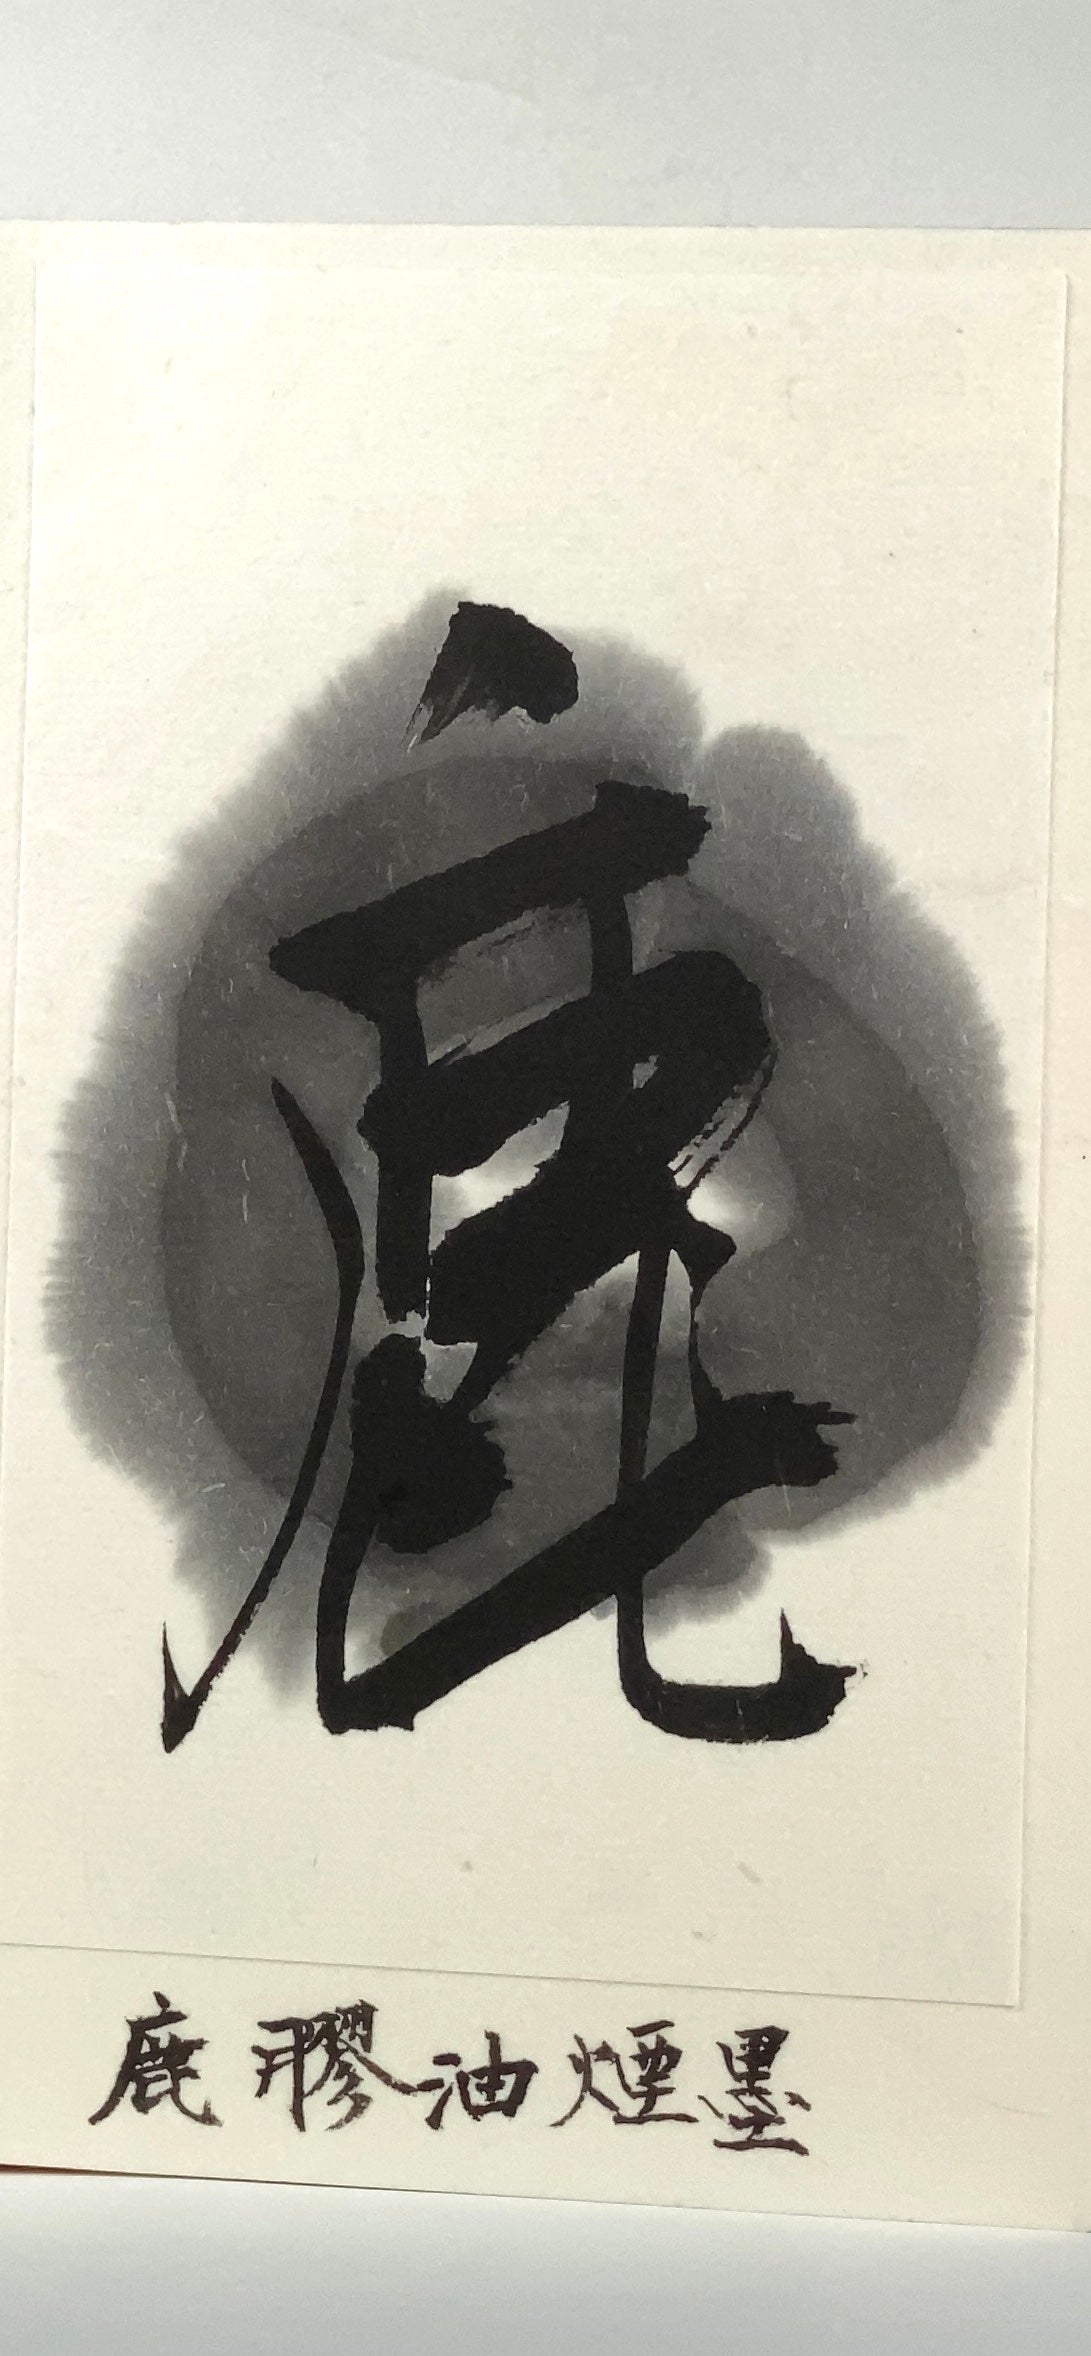 鹿
鹿膠油煙墨